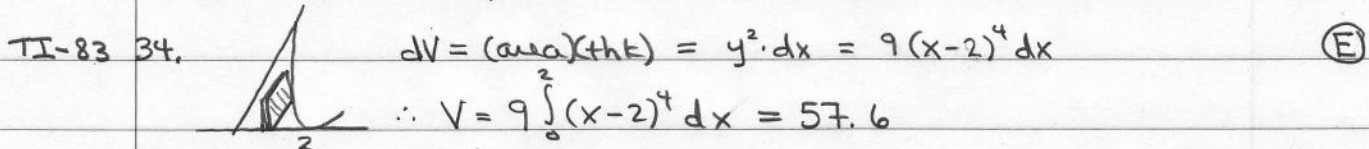 TI-83 34. dV = (area)(thk) = y²·dx = 9(x-2)⁴ dx Ⓔ
∴ V = 9 ∫₀² (x-2)⁴ dx = 57.6
2